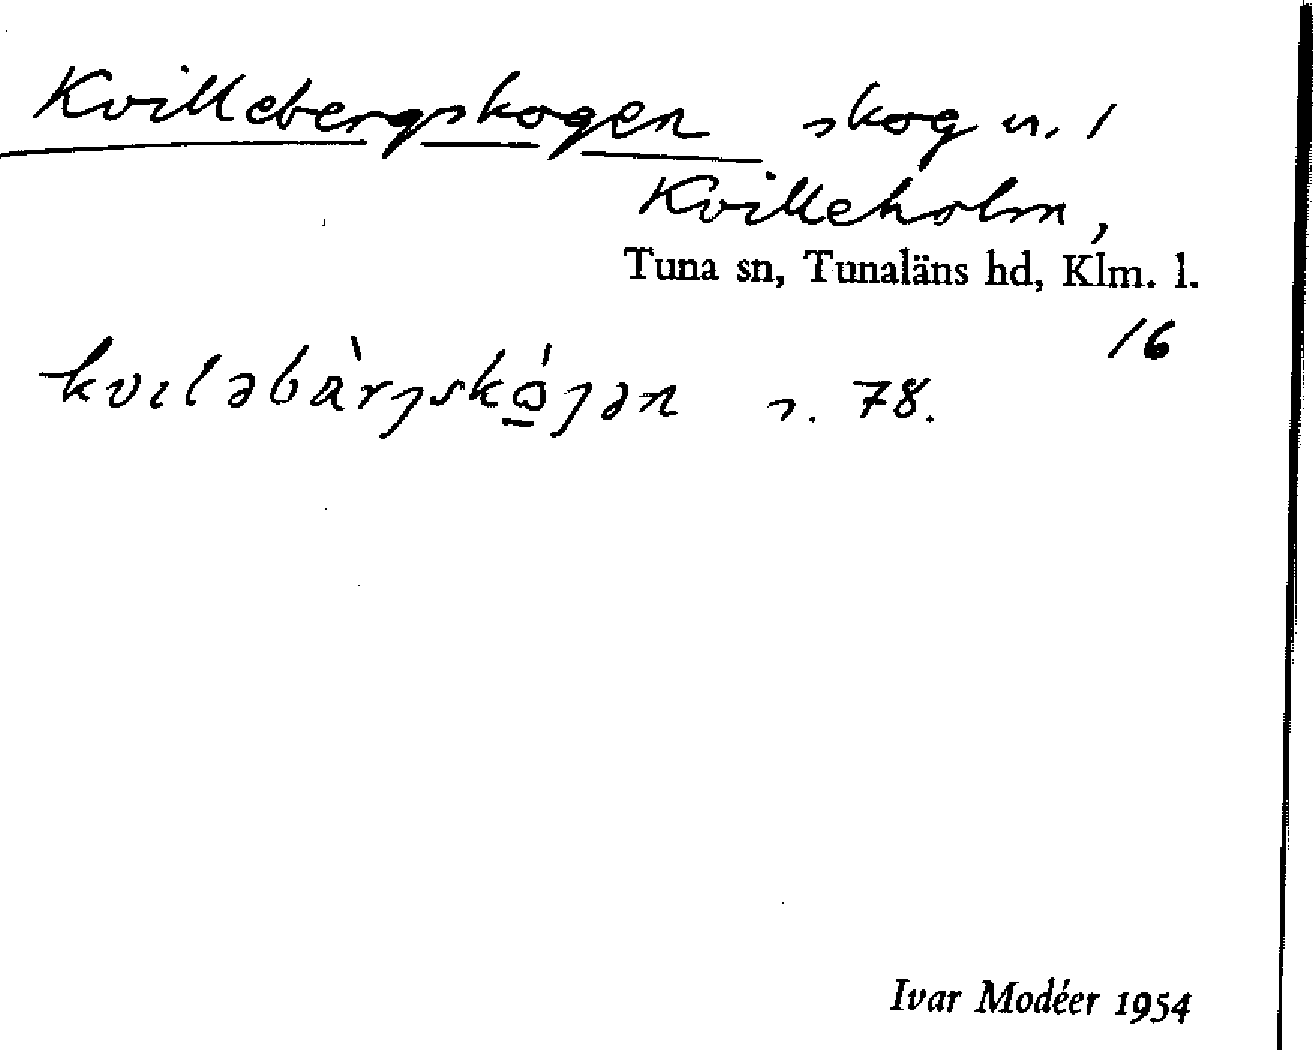 Kvillebergskogen skog n. 1
Kvilleholm,
Tuna sn, Tunaläns hd, Klm. l.
16
s. 78.
Ivar Modéer 1954